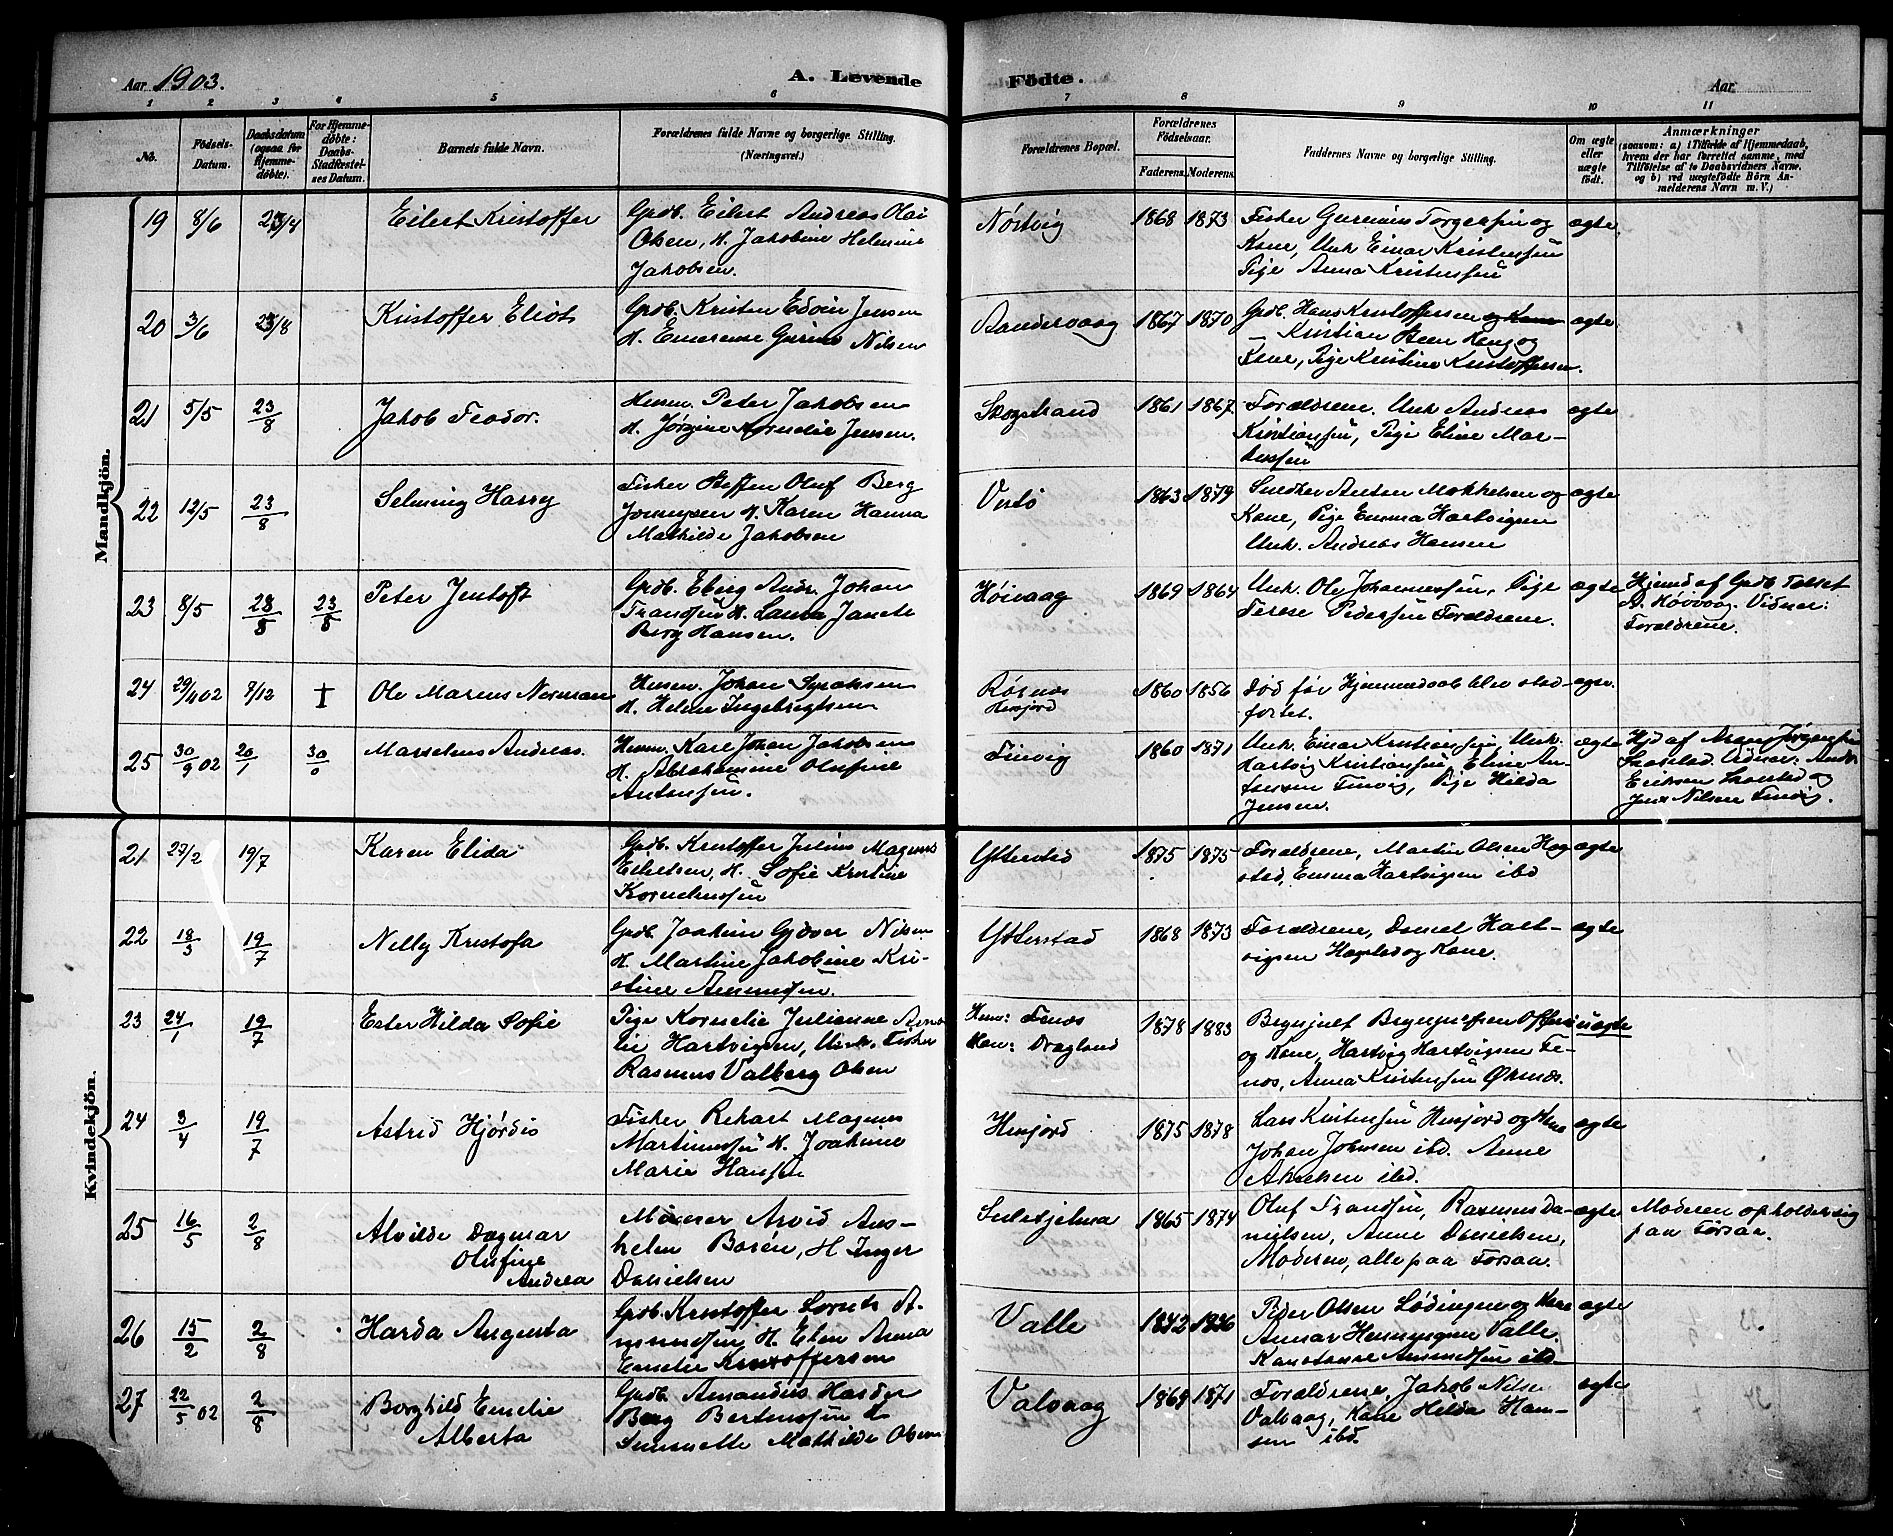 Aar 1903.
A. Levende
Födte.
Aar
1 2 3 4 5 6 7 8 9 10 11
No.
Födsels-
Datum.
Daabsdatum
(ogsaa for
Hjemme-
döbte).
For Hjemme-
döbte:
Daabs-
Stadfæstel-
ses Datum.
Barnets fulde Navn.
Forældrenes fulde Navne og borgerlige Stilling.
(Næringsvei.)
Forældrenes Bopæl.
Forældrenes
Födselsaar.
Faderens. Moderens.
Faddernes Navne og borgerlige Stilling.
Om ægte
eller
uægte
født.
Anmærkninger
(saasom: a) i Tilfælde af Hjemmedaab,
hvem der har forrettet samme, med
Tilføielse af to Daabsvidners Navne,
og b) ved uægtefødte Börn An-
melderens Navn m. V.)
Mandkjön.
19 8/6 23/8 Eilert Kristoffer
Grdb. Eilert Andreas Olai
Olsen, H. Jakobine Helmine
Jakobsen.
Nøstvig 1868 1873
Fisker Torgersen og
Kone, Unk Einar Kristensen
Pige Anna Kristensen
ægte
20 3/6 23/8 Kristoffer Eliot
Grdb. Kristen Edvin Jensen
H. Nilsen
Sandervaag 1867 1870
Grdb. Hans Kristoffersen og Kone
Kristian og
Kone, Pige Kristine Kristoffersen.
ægte
21 5/5 23/8 Jakob Teodor.
Husm. Peter Jakobsen
H. Jørgine Kornelie Jensen.
Skogstrand 1861 1867
Forældrene. Unk Andreas
Kristiansen, Pige Eline Mar-
kussen
ægte
22 12/5 23/8 Selming Harry
Fisker Steffen Oluf Berg
H. Karen Hanna
Mathilde Jakobsen
Visto 1863 1879
Snedker Anton Mikkelsen og
Kone, Pige Emma Hartvigsen
Unk. Andreas Hansen
ægte
23 8/5 23/8 23/8 Peter Jentoft
Grdb. Eberg Andr. Johan
Transen H. Laura Janete
Berg Hansen.
Høivaag 1869 1864
Unk. Ole Johannessen, Pige
Terese Pedersen Forældrene.
ægte
Hjemd af Grdb
A. Høivaag. Vidner:
Forældrene.
24 29/11 02 7/12 † Ole Marius Norman
Husm. Johan
H. Helene Ingebrigtsen
Rørnes
Hesjord
1860 1856
død før Hjemmedaab blev stad-
fæstet.
ægte
25 30/9 02 20/1 Marselius Andreas.
Husm. Karl Johan Jakobsen
H. Abrahamine Olufine
Antonsen.
Finvig 1860 1871
Unk. Einar Kristiansen, Unk.
Hartvig Kristiansen, Eline An-
tonsen Finvig, Pige Hilda
Jensen.
ægte
Hjd af
Vidner: Andr.
Eriksen og
Jens Nilsen Finvig.
Kvindekjön.
21 27/2 19/7 Karen Elida
Grdb. Kristoffer Julius Magnus
Eilertsen, H. Sofie Kristine
Korneliussen
Ytterstad 1875 1875
Forældrene, Martin Olsen Hog
stad, Emma Hartvigsen ibd
ægte
22 18/3 19/7 Nelly Kristofa
Grdb. Joakim Gjæver Nilsen
H. Martine Jakobine Kri-
stine Amundsen.
Ytterstad 1868 1873
Forældrene, Daniel Hart-
vigsen Hogstad og Kone.
ægte
23 24/1 19/7 Ester Hilda Sofie
Pige Kornelie Julianne Ama
lie Hartvigsen, Unk. Fisker
Rasmus Valberg Olsen
Hun: Fenes
Han: Dragland
1878 1883
og Kone, Hartvig Hartvigsen Fe-
nes, Anna Kristensen Øksnes.
uægte
24 3/4 19/7 Astrid Hjørdis
Fisker Rikart Magnus
Martinussen H. Joakime
Marie Hansen
Hesjord 1875 1878
Lars Kristensen Hesjord og Kone
Johan Johnsen ibd. Anne
Akselsen ibd.
ægte
25 16/5 2/8 Alvilde Dagmar
Olufine
Andrea
Minerer Arvid Ans-
helm Borén, H Inger
Danielsen
Sulitjelma 1865 1874
Oluf Transen, Rasmus Da-
nielsen, Anne Danielsen,
Moderen, alle paa Forsaa.
ægte
Moderen opholder sig
paa Forsaa.
26 15/2 2/8 Harda Augusta
Grdb. Kristoffer Lorents A-
mundsen H. Elen Anna
Emelie Kristoffersen
Valle 1842 1846
Peder Olsen Lødingen og Kone
Annar Henningsen Valle.
Konstanse Amundsen ibd
ægte
27 22/5 02 2/8 Borghild Emelie
Alberta
Grdb. Amandus Harder
Berg Berntssen &
Mathilde Olsen
Valvaag 1869 1871
Forældrene, Jakob Nilsen
Valvaag, Kone Hilda Han-
sen ibd.
ægte